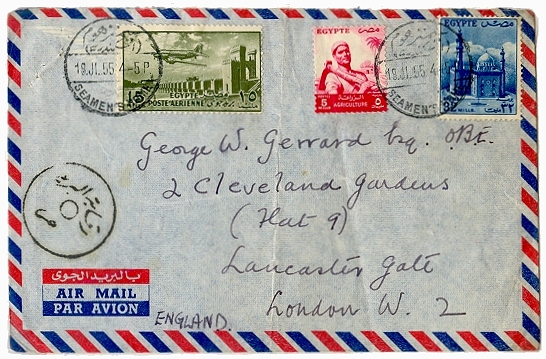 18.JL.55.4-5P
SEAMEN'S
EGYPTE
POSTE AERIENNE
١٠٥
EGYPTE مصر
5
AGRICULTURE
الزراعة
٥
EGYPTE مصر
MILLS
٣٢
18.JL.55.4
SEAMEN'S
George W. Gerrard Esq. O.B.E.
2 Cleveland Gardens
(Flat 9)
Lancaster Gate
London W. 2
ENGLAND.
بالبريد الجوى
AIR MAIL
PAR AVION